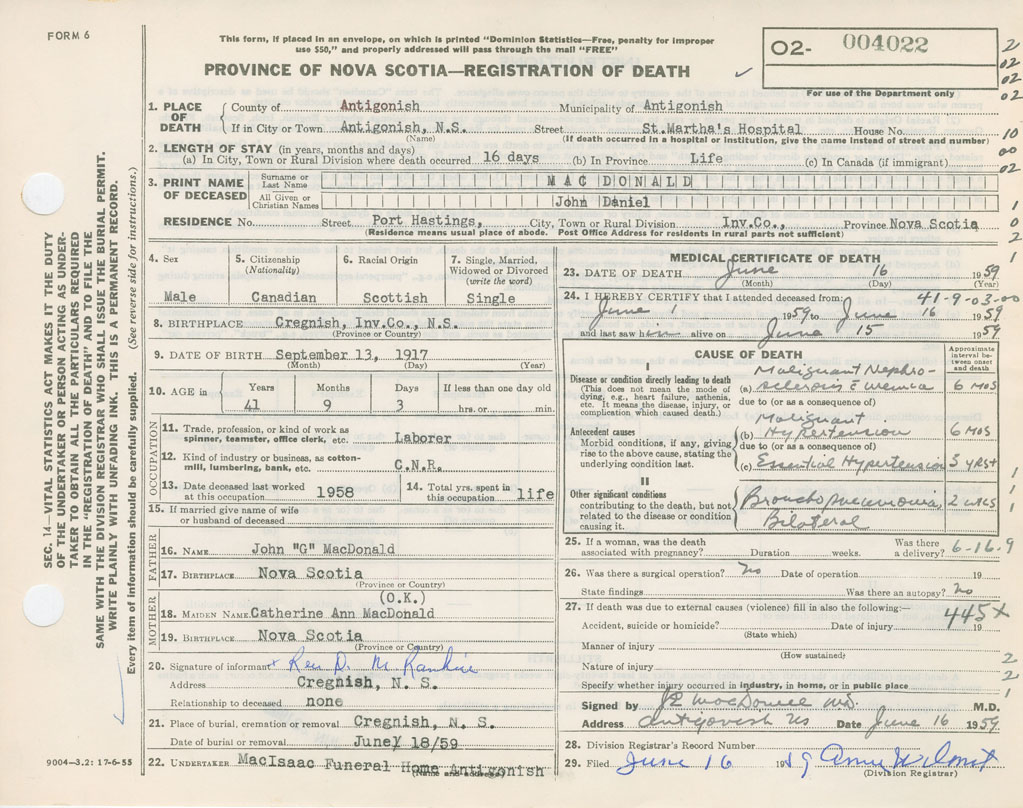 FORM 6
This form, if placed in an envelope, on which is printed "Dominion Statistics—Free, penalty for improper
use $50," and properly addressed will pass through the mail "FREE"
PROVINCE OF NOVA SCOTIA—REGISTRATION OF DEATH
02- 004022
For use of the Department only
2
02
02
02
10
00
02
1
0
2
1
1
1
1
1
2
2
1
SEC. 14—VITAL STATISTICS ACT MAKES IT THE DUTY
OF THE UNDERTAKER OR PERSON ACTING AS UNDER-
TAKER TO OBTAIN ALL THE PARTICULARS REQUIRED
IN THE "REGISTRATION OF DEATH" AND TO FILE THE
SAME WITH THE DIVISION REGISTRAR WHO SHALL ISSUE THE BURIAL PERMIT.
WRITE PLAINLY WITH UNFADING INK. THIS IS A PERMANENT RECORD.
Every item of information should be carefully supplied. (See reverse side for instructions.)
1. PLACE OF DEATH County of Antigonish Municipality of Antigonish
If in City or Town Antigonish, N.S. Street St.Martha's Hospital House No.
(Name) (If death occurred in a hospital or institution, give the name instead of street and number)
2. LENGTH OF STAY (in years, months and days)
(a) In City, Town or Rural Division where death occurred 16 days (b) In Province Life (c) In Canada (if immigrant)
3. PRINT NAME OF DECEASED Surname or Last Name MACDONALD
All Given or Christian Names John Daniel
RESIDENCE No. Street Port Hastings, City, Town or Rural Division Inv.Co., Province Nova Scotia
(Residence means usual place of abode. Post Office Address for residents in rural parts not sufficient)
4. Sex 5. Citizenship (Nationality) 6. Racial Origin 7. Single, Married, Widowed or Divorced (write the word)
Male Canadian Scottish Single
8. BIRTHPLACE Cregnish, Inv.Co., N.S.
(Province or Country)
9. DATE OF BIRTH September 13, 1917
(Month) (Day) (Year)
10. AGE in Years Months Days If less than one day old
41 9 3 hrs. or min.
OCCUPATION
11. Trade, profession, or kind of work as
spinner, teamster, office clerk, etc. Laborer
12. Kind of industry or business, as cotton-
mill, lumbering, bank, etc. C.N.R.
13. Date deceased last worked
at this occupation 1958
14. Total yrs. spent in
this occupation life
15. If married give name of wife
or husband of deceased
FATHER
16. NAME John "G" MacDonald
17. BIRTHPLACE Nova Scotia
(Province or Country)
(O.K.)
MOTHER
18. MAIDEN NAME Catherine Ann MacDonald
19. BIRTHPLACE Nova Scotia
(Province or Country)
20. Signature of informant x Rev D. M. Rankin
Address Cregnish, N. S.
Relationship to deceased none
21. Place of burial, cremation or removal Cregnish, N. S.
Date of burial or removal June 18/59
22. UNDERTAKER MacIsaac Funeral Home Antigonish
(Name and address)
9004—3.2: 17-6-55
MEDICAL CERTIFICATE OF DEATH
23. DATE OF DEATH June 16 1959
(Month) (Day) (Year)
24. I HEREBY CERTIFY that I attended deceased from: 41-9-03-00
June 1 1959 to June 16 1959
and last saw him alive on June 15 1959
CAUSE OF DEATH
Approximate interval between onset and death
I
Disease or condition directly leading to death
(This does not mean the mode of
dying, e.g., heart failure, asthenia,
etc. It means the disease, injury, or
complication which caused death.)
(a) Malignant Nephro-
sclerosis c̄ Uremia 6 mos
due to (or as a consequence of)
Antecedent causes
Morbid conditions, if any, giving
rise to the above cause, stating the
underlying condition last.
(b) Malignant
Hypertension 6 mos
due to (or as a consequence of)
(c) Essential Hypertension 3 yrs+
II
Other significant conditions
contributing to the death, but not
related to the disease or condition
causing it.
Bronchopneumonia, 2 wks
Bilateral
25. If a woman, was the death Was there
associated with pregnancy? Duration weeks. a delivery? 6-16-9
26. Was there a surgical operation? No Date of operation 19
State findings Was there an autopsy? No
27. If death was due to external causes (violence) fill in also the following:—
445x
Accident, suicide or homicide? Date of injury 19
(State which)
Manner of injury
(How sustained)
Nature of injury
Specify whether injury occurred in industry, in home, or in public place
Signed by MacDonell MD. M.D.
Address Antigonish NS Date June 16 1959
28. Division Registrar's Record Number
29. Filed June 16 1959
(Division Registrar)